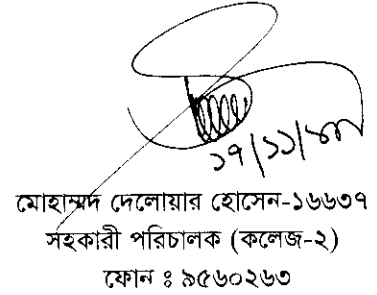 ১৭/১১/
মোহাম্মদ দেলোয়ার হোসেন-১৬৬৩৭
সহকারী পরিচালক (কলেজ-২)
ফোন ঃ ৯৫৬০২৬৩